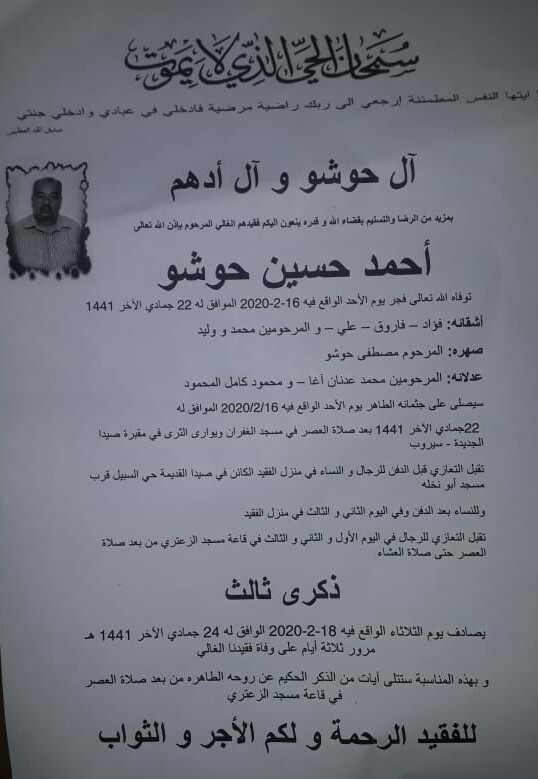 سبحان الحي الذي لا يموت
ايتها النفس المطمئنة إرجعي الى ربك راضية مرضية فادخلي في عبادي وادخلي جنتي
صدق الله العظيم
آل حوشو و آل أدهم
بمزيد من الرضا والتسليم بقضاء الله و قدره ينعون اليكم فقيدهم الغالي المرحوم بإذن الله تعالى
أحمد حسين حوشو
توفاه الله تعالى فجر يوم الأحد الواقع فيه 16-2-2020 الموافق له 22 جمادي الآخر 1441
أشقائه: فؤاد – فاروق – علي – و المرحومين محمد و وليد
صهره: المرحوم مصطفى حوشو
عدلائه: المرحومين محمد عدنان آغا – و محمود كامل المحمود
سيصلى على جثمانه الطاهر يوم الأحد الواقع فيه 2020/2/16 الموافق له
22جمادي الآخر 1441 بعد صلاة العصر في مسجد الغفران ويوارى الثرى في مقبرة صيدا
الجديدة - سيروب
تقبل التعازي قبل الدفن للرجال و النساء في منزل الفقيد الكائن في صيدا القديمة حي السبيل قرب
مسجد أبو نخله
وللنساء بعد الدفن وفي اليوم الثاني و الثالث في منزل الفقيد
تقبل التعازي للرجال في اليوم الأول و الثاني و الثالث في قاعة مسجد الزعتري من بعد صلاة
العصر حتى صلاة العشاء
ذكرى ثالث
يصادف يوم الثلاثاء الواقع فيه 18-2-2020 الوافق له 24 جمادي الآخر 1441 هـ
مرور ثلاثة أيام على وفاة فقيدنا الغالي
و بهذه المناسبة ستتلى آيات من الذكر الحكيم عن روحه الطاهره من بعد صلاة العصر
في قاعة مسجد الزعتري
للفقيد الرحمة و لكم الأجر و الثواب